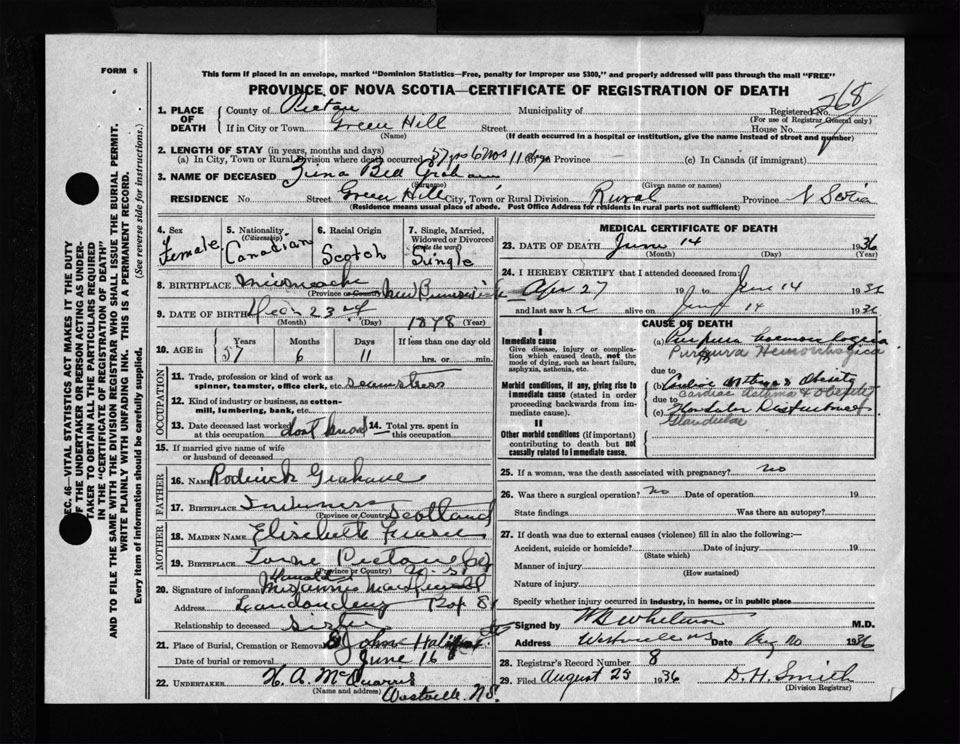 FORM 6
This form if placed in an envelope, marked "Dominion Statistics—Free, penalty for improper use $300," and properly addressed will pass through the mail "FREE"
PROVINCE OF NOVA SCOTIA—CERTIFICATE OF REGISTRATION OF DEATH
1. PLACE OF DEATH County of Pictou Municipality of Registered No. 268
(For use of Registrar General only)
If in City or Town Green Hill Street House No.
(Name) (If death occurred in a hospital or institution, give the name instead of street and number)
2. LENGTH OF STAY (in years, months and days)
(a) In City, Town or Rural Division where death occurred 57 yrs 6 mos 11 dys (b) in Province (c) In Canada (if immigrant)
3. NAME OF DECEASED Bell Graham
(Surname) (Given name or names)
RESIDENCE No. Street Green Hill City, Town or Rural Division Rural Province N Scotia
(Residence means usual place of abode. Post Office Address for residents in rural parts not sufficient)
4. Sex Female
5. Nationality (Citizenship) Canadian
6. Racial Origin Scotch
7. Single, Married, Widowed or Divorced (write the word) Single
8. BIRTHPLACE New Brunswick
(Province or Country)
9. DATE OF BIRTH Dec 23rd 1878
(Month) (Day) (Year)
10. AGE in Years 57 Months 6 Days 11 If less than one day old hrs. or min.
OCCUPATION
11. Trade, profession or kind of work as spinner, teamster, office clerk, etc. seamstress
12. Kind of industry or business, as cotton-mill, lumbering, bank, etc.
13. Date deceased last worked at this occupation dont know 14. Total yrs. spent in this occupation
15. If married give name of wife or husband of deceased
FATHER
16. NAME Rodrick Grahame
17. BIRTHPLACE Scotland
(Province or Country)
MOTHER
18. MAIDEN NAME Elizabeth Fraser
19. BIRTHPLACE Pictou N. S.
(Province or Country)
20. Signature of informant
Address Londonderry
Relationship to deceased Sister
21. Place of Burial, Cremation or Removal St Johns
Date of burial or removal June 16
22. UNDERTAKER H. A. McQuarrie
(Name and address) Westville, N.S.
MEDICAL CERTIFICATE OF DEATH
23. DATE OF DEATH June 14 1936
(Month) (Day) (Year)
24. I HEREBY CERTIFY that I attended deceased from
Apr 27 19 to June 14 1936
and last saw h r alive on June 14 1936
CAUSE OF DEATH
I
Immediate cause
Give disease, injury or complication which caused death, not the mode of dying, such as heart failure, asphyxia, asthenia, etc.
Morbid conditions, if any, giving rise to immediate cause (stated in order proceeding backwards from immediate cause).
II
Other morbid conditions (if important) contributing to death but not causally related to immediate cause.
(a) Purpura hemorrhagica
Purpura Hemorrhagica
due to
(b) Cardiac Asthma & Obesity
Cardiac Asthma & Obesity
due to
(c) Glandular Disturbance
Glandular
25. If a woman, was the death associated with pregnancy? no
26. Was there a surgical operation? no Date of operation 19
State findings Was there an autopsy?
27. If death was due to external causes (violence) fill in also the following:—
Accident, suicide or homicide? Date of injury 19
(State which)
Manner of injury
(How sustained)
Nature of injury
Specify whether injury occurred in industry, in home, or in public place
Signed by M.D.
Address Westville NS Date Aug 20 1936
28. Registrar's Record Number 8
29. Filed August 25 1936 D. H. Smith
(Division Registrar)
SEC. 46—VITAL STATISTICS ACT MAKES IT THE DUTY OF THE UNDERTAKER OR PERSON ACTING AS UNDERTAKER TO OBTAIN ALL THE PARTICULARS REQUIRED IN THE "CERTIFICATE OF REGISTRATION OF DEATH" AND TO FILE THE SAME WITH THE DIVISION REGISTRAR WHO SHALL ISSUE THE BURIAL PERMIT.
WRITE PLAINLY WITH UNFADING INK. THIS IS A PERMANENT RECORD.
Every item of information should be carefully supplied. (See reverse side for instructions.)